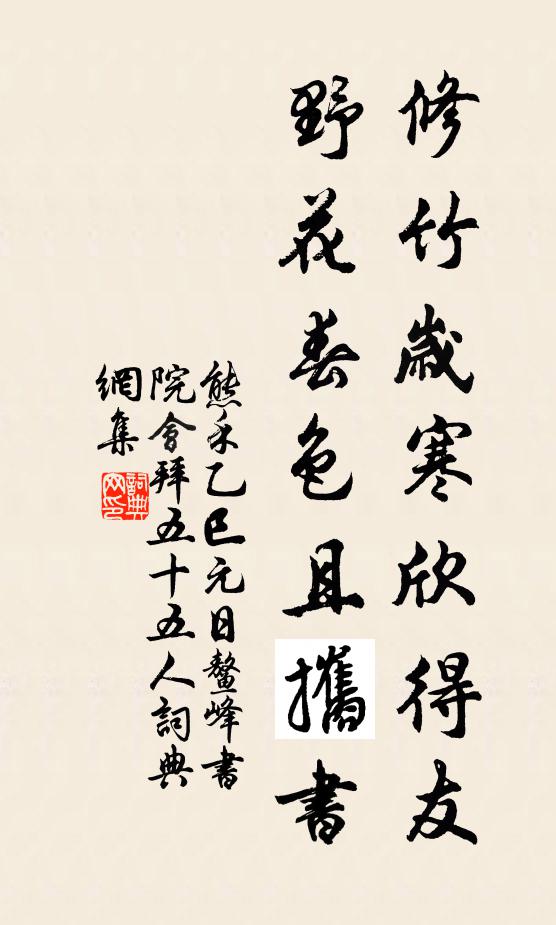 修竹歲寒欣得友
野花春色且攜書
熊禾乙巳元日鼇峰書
院會拜五十五人詞典
網集
詞典
网印